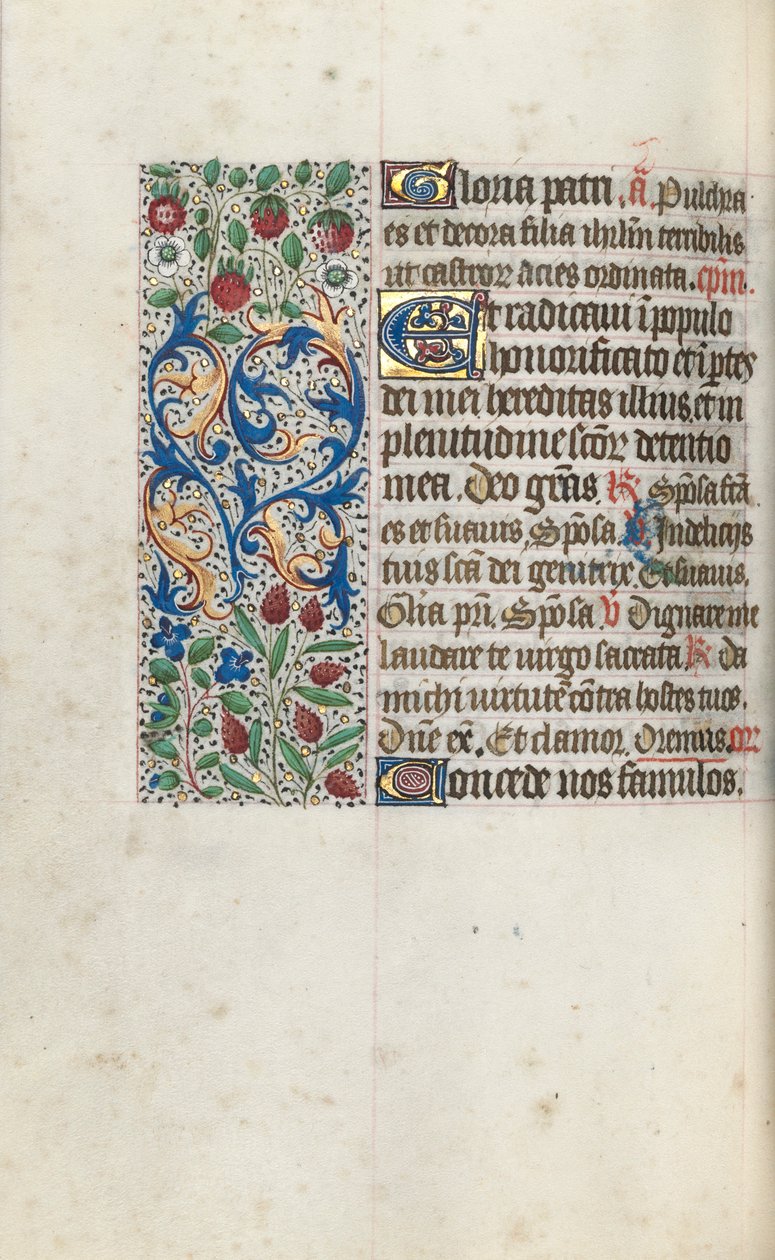 Gloria patri. ā. Pulchra
es et decora filia ihrl̄m terribilis
ut castroꝝ acies ordinata. cp̄m.
Et radicaui ī populo
honorificato et ī ꝑtes
dei mei hereditas illius. et in
plenitudine sc̄oꝝ detentio
mea. Deo gr̄as. ℟. Sp̄osa fc̄a
es et suauis, Sp̄osa. ℣. In delicijs
tuis sc̄a dei genitrix Et suauis.
Gl̄ia pr̄i. Sp̄osa ℣ Dignare me
laudare te uirgo sacrata. ℟. Da
michi uirtutē cōtra hostes tuos.
Dn̄e ex̄. Et clamor. Oremus. orꝝ
Concede nos famulos.